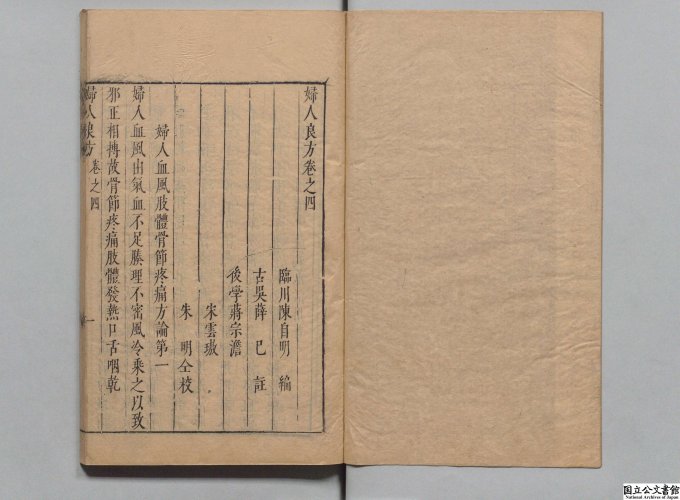 婦人良方卷之四
臨川陳自明編
古吳薛已註
後學蔣宗澹
宋雲璈
朱明仝校
婦人血風肢體骨節疼痛方論第一
婦人血風由氣血不足腠理不密風冷乘之以致
邪正相搏故骨節疼痛肢體發熱口舌咽乾
婦人良方 卷之四 一
国立公文書館
National Archives of Japan